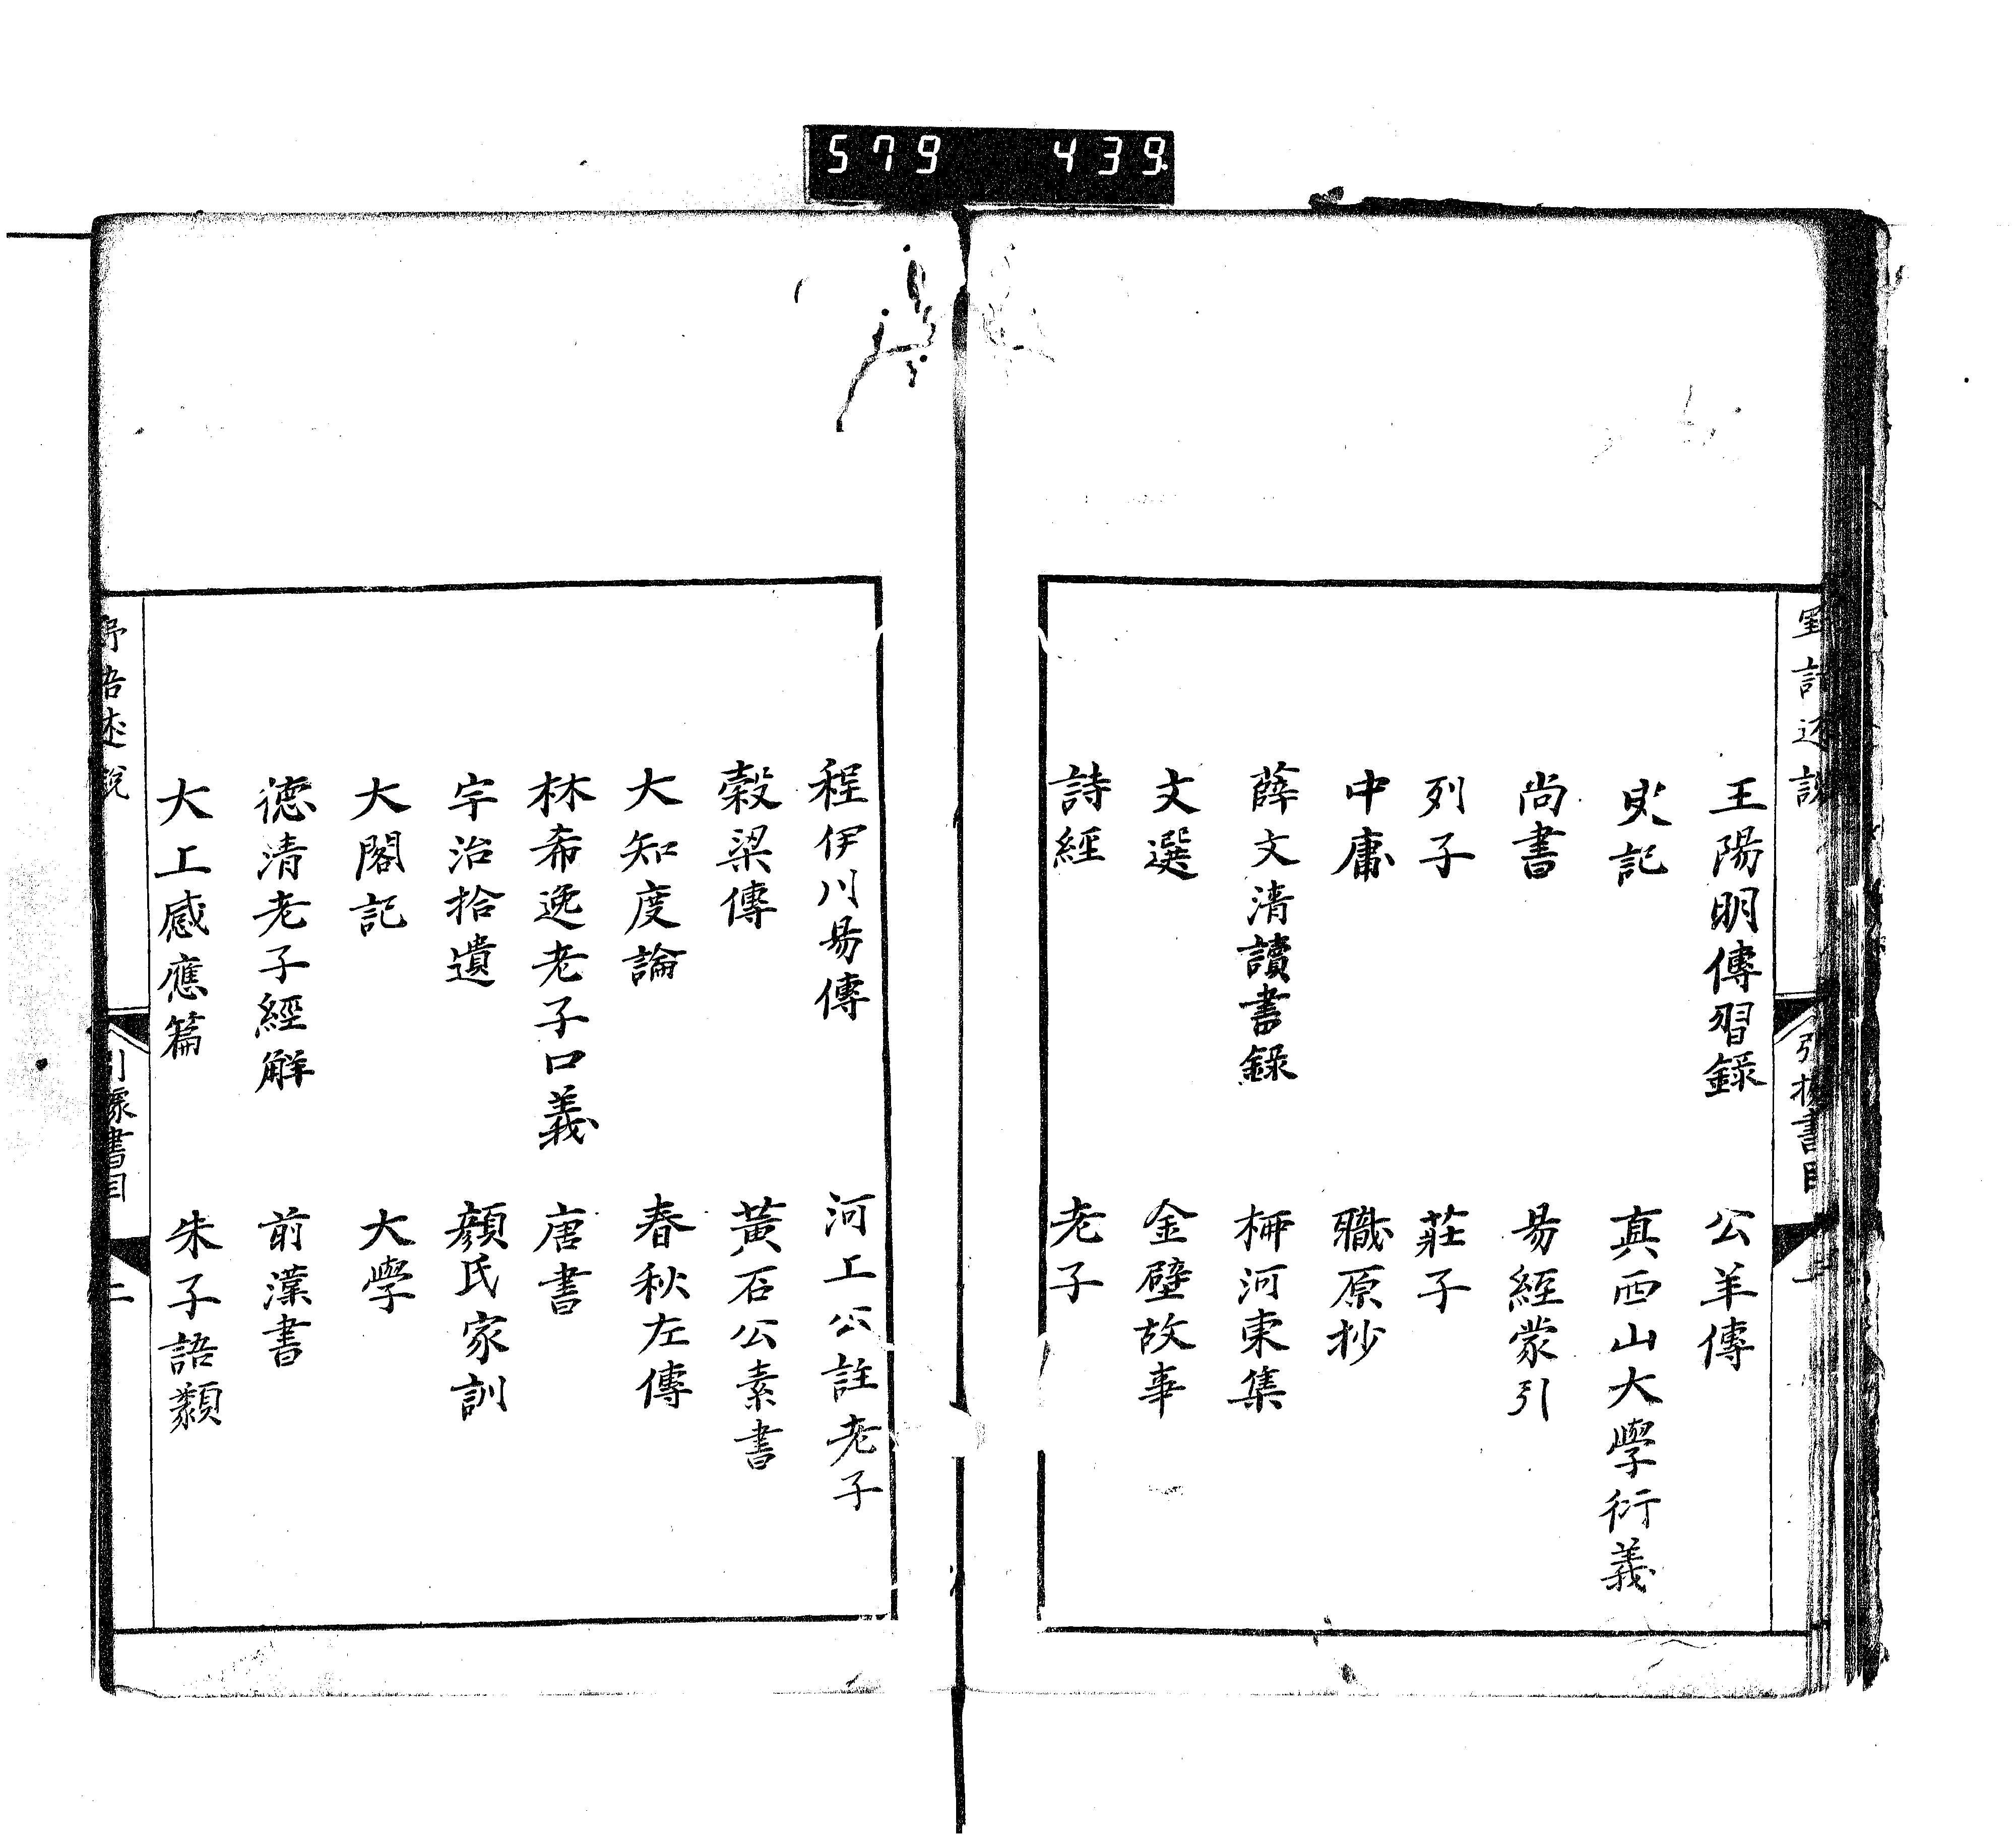 579 439
王陽明傳習録
公羊傳
史記
真西山大學衍義
尚書
易經蒙引
列子
莊子
中庸
職原抄
薛文清讀書録
柳河東集
文選
金壁故事
詩經
老子
程伊川易傳
河上公註老子
穀梁傳
黃石公素書
大知度論
春秋左傳
林希逸老子口義
唐書
宇治拾遺
顔氏家訓
大閤記
大學
德清老子經解
前漢書
大上感應篇
朱子語類
述說
引據書目
二